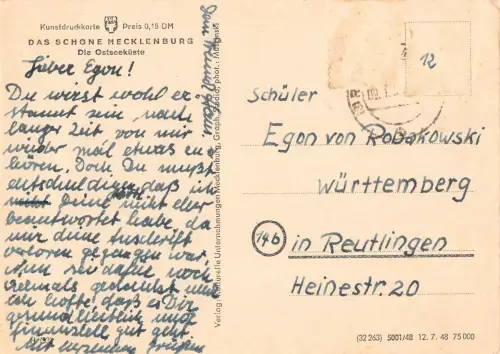 Kunstdruckkarte Preis 0,15 DM
DAS SCHÖNE MECKLENBURG
Die Ostseeküste
Lieber Egon!
Du wirst wohl er-
staunt sein, nach
langer Zeit von mir
wieder mal etwas zu
hören. Doch Du mußt
entschuldigen, daß ich
Deine nicht eher
beantwortet habe, da
mir deine Anschrift
verloren gegangen war.
sei dafür noch
und
ich hoffe, daß es Dir
gesundheitlich und
finanziell gut geht.
Mit Grüßen
Dein Freund
Verlag: Kulturelle Unternehmungen Mecklenburg, Graph. Studio, phot.:
12
Schüler
Egon von Robakowski
Württemberg
14b
in Reutlingen
Heinestr. 20
(32 263) 5001/48 12. 7. 48 75 000